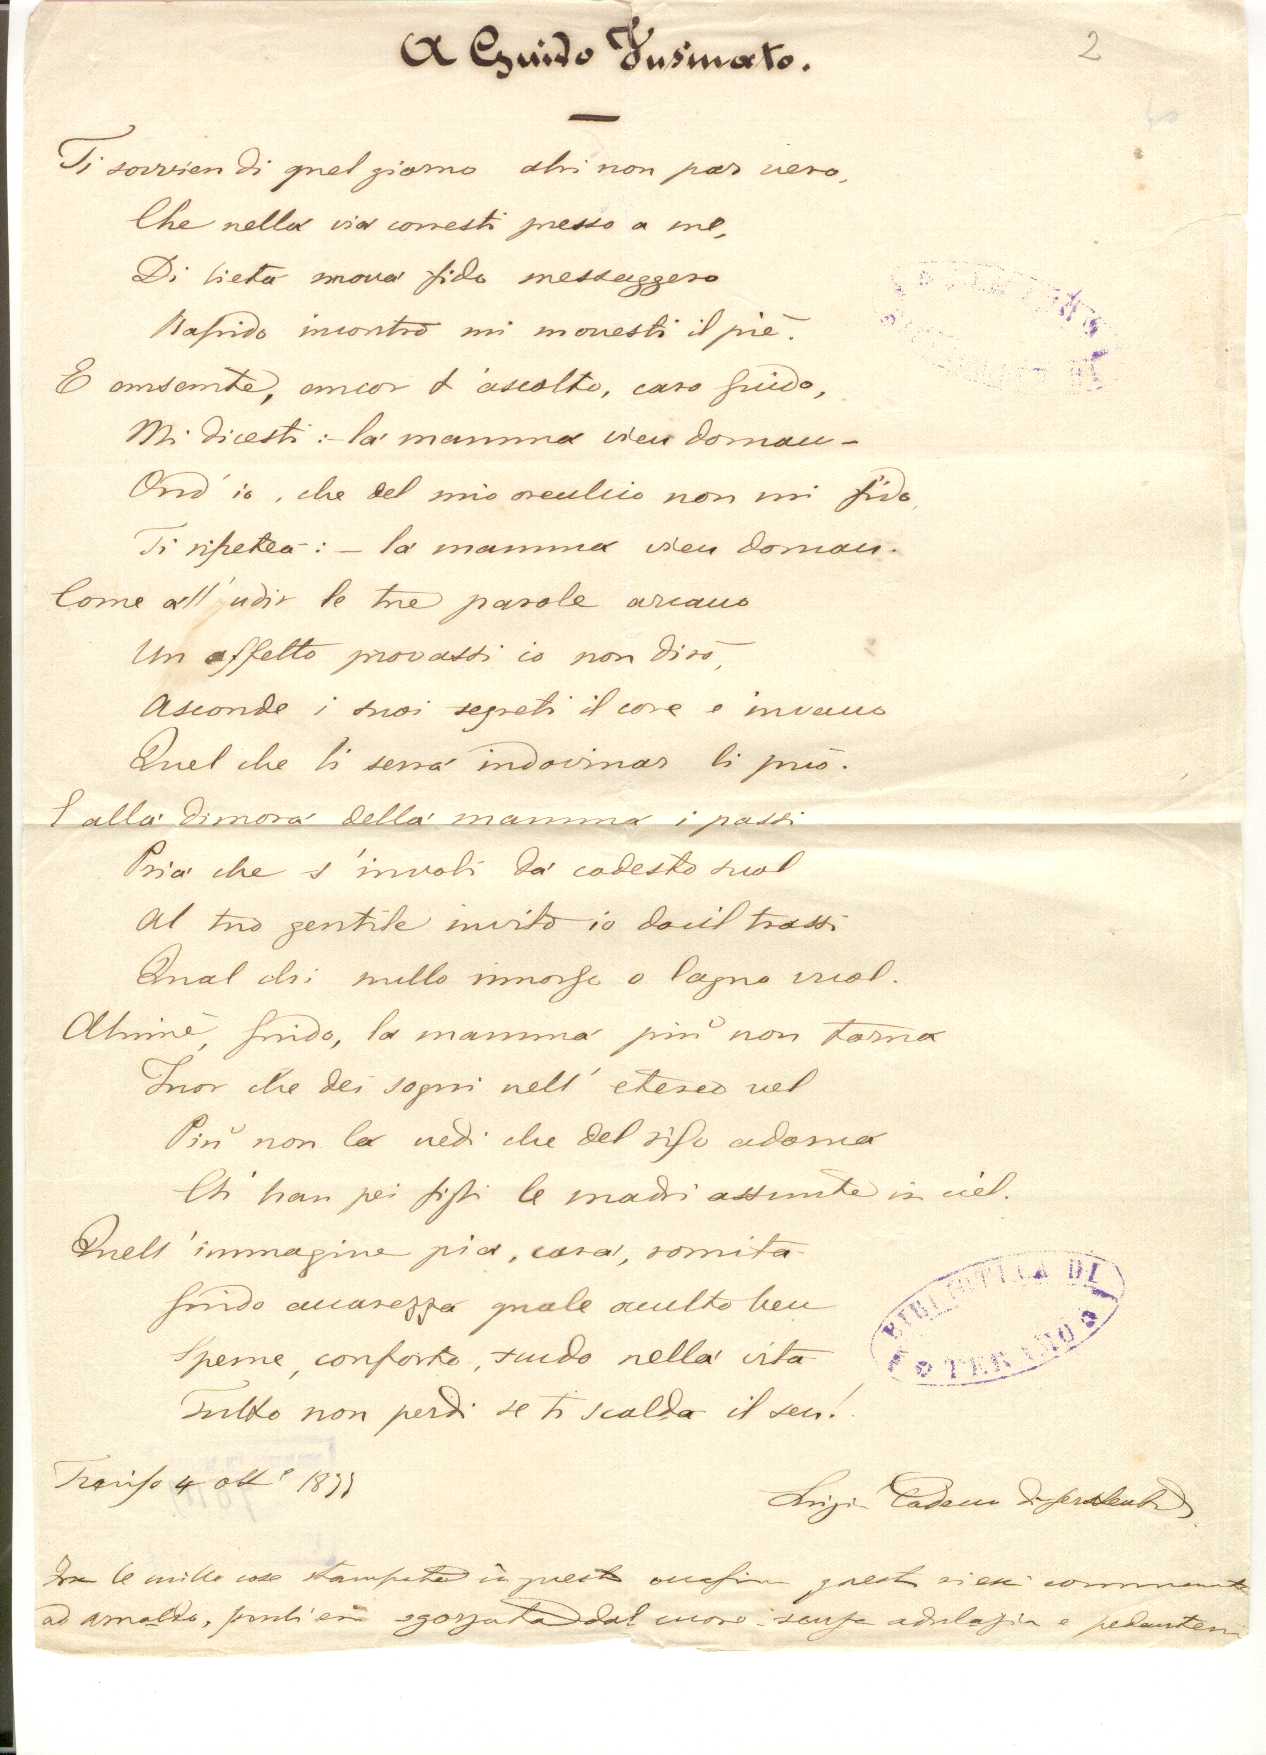 A Guido Fusinato.
2
Ti sovvien di quel giorno ahi non par vero,
Che nella via corresti presso a me,
Di lieta nova fido messaggero
Rapido incontro mi movesti il piè.
E ansante, ancor t'ascolto, caro Guido,
Mi dicesti :- la mamma vien doman -
Ond'io, che del mio orecchio non mi fido,
Ti ripetea : - la mamma vien doman.
Come all'udir le tre parole arcano
Un affetto provassi io non dirò,
Asconde i suoi segreti il core e invano
Quel che li serra indovinar li può.
E alla dimora della mamma i passi
Pria che s'involi da codesto suol
Al tuo gentile invito io docil trassi
Qual chi nullo rimorso o lagno vuol.
Ahimè, Guido, la mamma più non torna
Fuor che dei sogni nell'etereo vel
Più non la vedi che del riso adorna
Ch'han pei figli le madri assunte in ciel.
Quell'immagine pia, cara, romita
Guido accarezza quale occulto ben
Speme, conforto, scudo nella vita
Tutto non perdi se ti scalda il sen!
BIBLIOTECA DI
TERAMO
Treviso 4 ott.e 18
Luigia Codemo di
le mille cose stampate in questa occasione questi
ad Arnaldo, sgorgata dal cuore senza adulazion e pedanteria